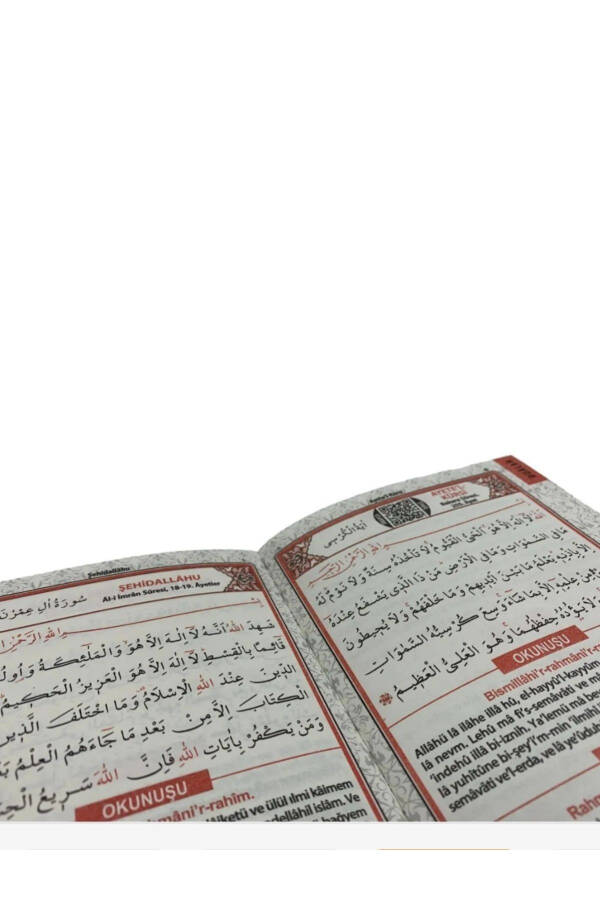 Şehidallâhu
ŞEHİDALLÂHU
Al-i İmrân Sûresi, 18-19. Âyetler
سُورَةُ اٰلِ عِمْرٰنَ
شَهِدَ اللّٰهُ اَنَّهُ لَٓا اِلٰهَ اِلَّا هُوَ وَالْمَلٰٓئِكَةُ وَاُولُوا
قَٓائِمًا بِالْقِسْطِ لَٓا اِلٰهَ اِلَّا هُوَ الْعَز۪يزُ الْحَك۪يمُ
الدّ۪ينَ عِنْدَ اللّٰهِ الْاِسْلَامُ وَمَا اخْتَلَفَ الَّذ۪ينَ
الْكِتَابَ اِلَّا مِنْ بَعْدِ مَا جَٓاءَهُمُ الْعِلْمُ
وَمَنْ يَكْفُرْ بِاٰيَاتِ اللّٰهِ فَاِنَّ اللّٰهَ سَر۪يعُ
OKUNUŞU
râhmâni'r-rahîm.
ve ülül ılmi kâimem
islâm. Ve
bağyem
Ayete'l-Kürsi
AYETE'L
KÜRSİ
Bakara Sûresi,
255. Âyet
اٰيَةُ الْكُرْسِي
اَللّٰهُ لَٓا اِلٰهَ اِلَّا هُوَ اَلْحَيُّ الْقَيُّومُ لَا تَأْخُذُهُ سِنَةٌ وَلَا نَوْمٌ لَهُ
مَا فِي السَّمٰوَاتِ وَمَا فِي الْاَرْضِ مَنْ ذَا الَّذ۪ي يَشْفَعُ عِنْدَهُ
اِلَّا بِاِذْنِه۪ يَعْلَمُ مَا بَيْنَ اَيْد۪يهِمْ وَمَا خَلْفَهُمْ وَلَا يُح۪يطُونَ
مِنْ عِلْمِه۪ٓ اِلَّا بِمَا شَٓاءَ وَسِعَ كُرْسِيُّهُ السَّمٰوَاتِ
وَلَا يَؤُ۫دُهُ حِفْظُهُمَا وَهُوَ الْعَلِيُّ الْعَظ۪يمُ
OKUNUŞU
Bismillâhi'r-rahmâni'r-ra
Allâhü lâ ilâhe illâ hû, el-hayyü'l-kayyûm
lâ nevm. Lehû mâ fi's-semâvâti ve m
'indehû illâ bi-iznih. Ya'lemü mâ be
lâ yuhîtûne bi-şey'i'm-min 'ilmihî
semâvâti ve'l-erda, ve lâ ye'ûduh
Rahm